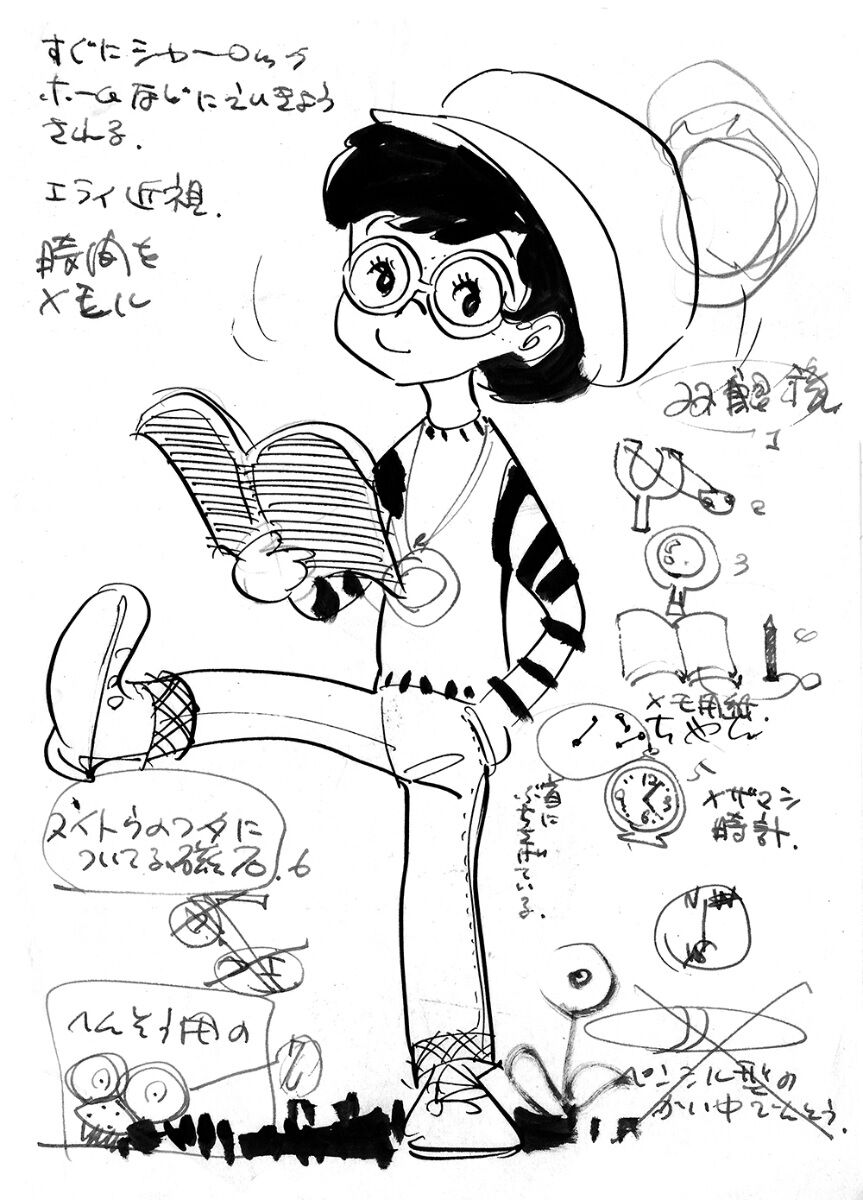 すぐにシャーロック
ホームなどにえいきょう
される.
エライ近視.
時間を
メモル
双眼鏡
1
2
3
4
メモ用紙
5
メザマシ
時計.
首に
ぶらさげている.
ついてる磁石.6
へんそう用の
7
ペンシル型の
かい中でんとう.
12
3
6
9
N